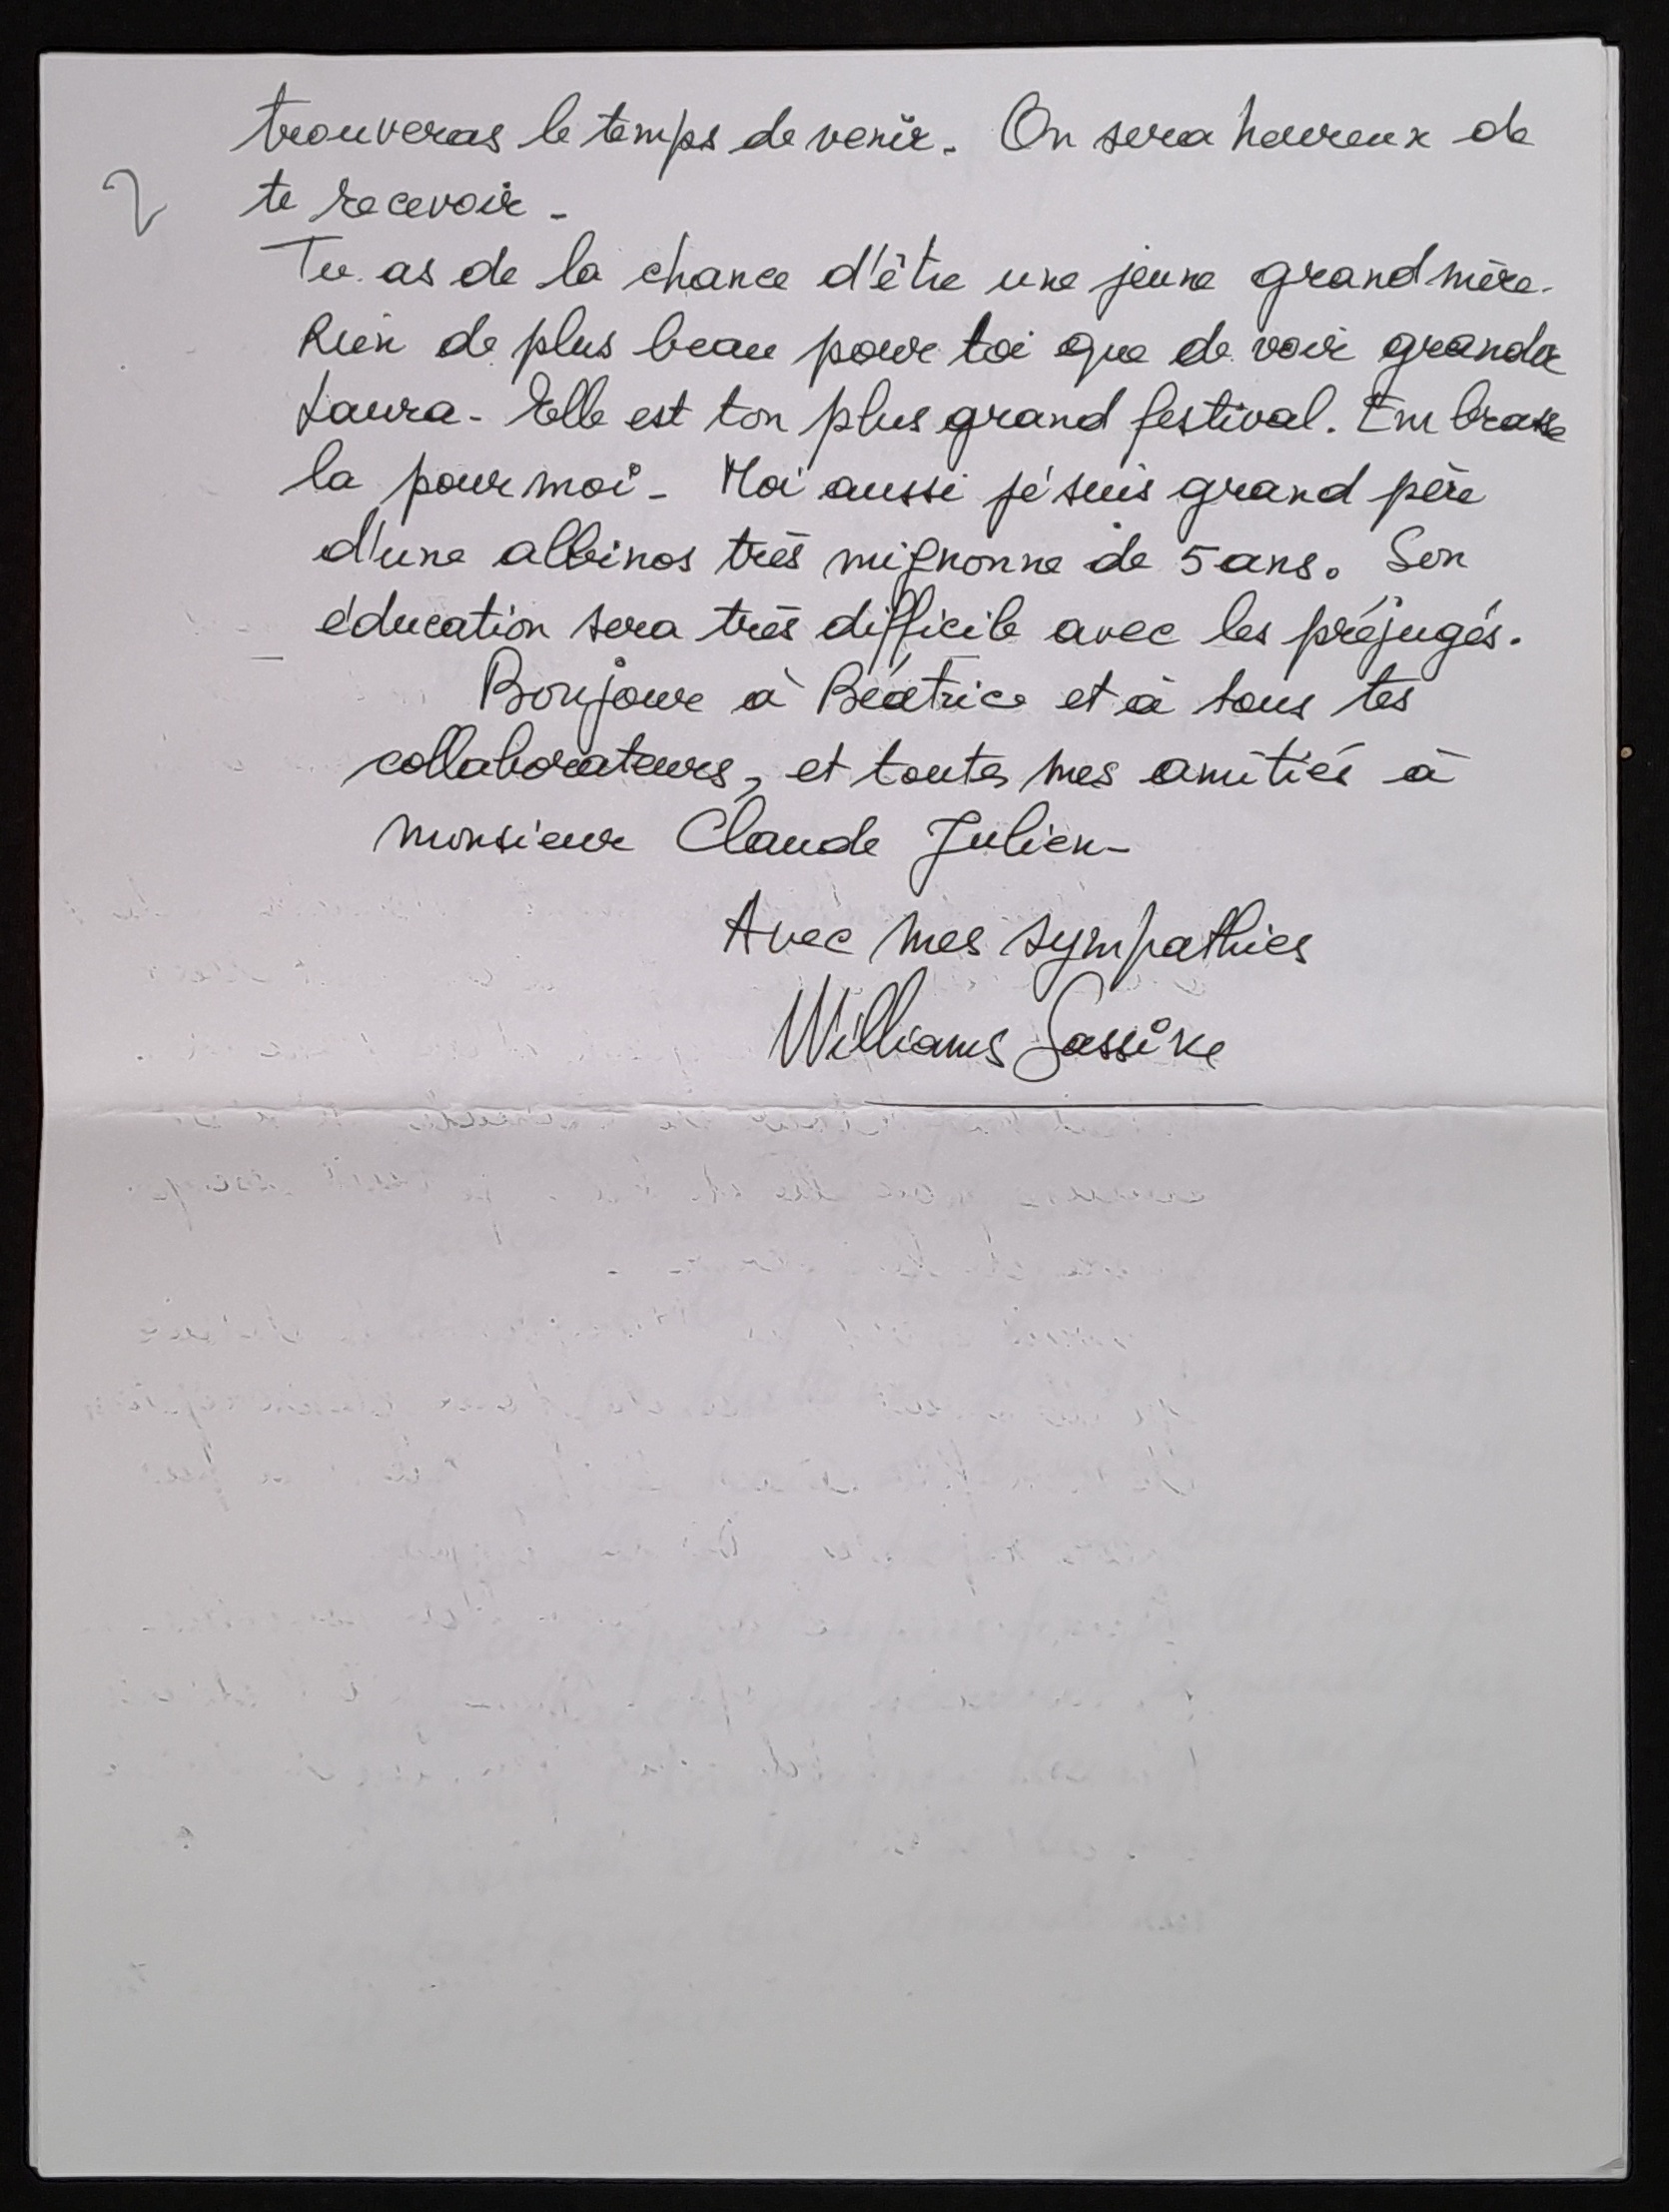 trouveras le temps de venir. On sera heureux de
2
te recevoir.
Tu as de la chance d'être une jeune grand mère.
Rien de plus beau pour toi que de voir grandir
Laura. Elle est ton plus grand festival. Embrasse
la pour moi. Moi aussi je suis grand père
d'une albinos très mignonne de 5 ans. Son
éducation sera très difficile avec les préjugés.
Bonjour à Béatrice et à tous tes
collaborateurs, et toutes mes amitiés à
monsieur Claude Julien.
Avec mes sympathies
Williams Sassine